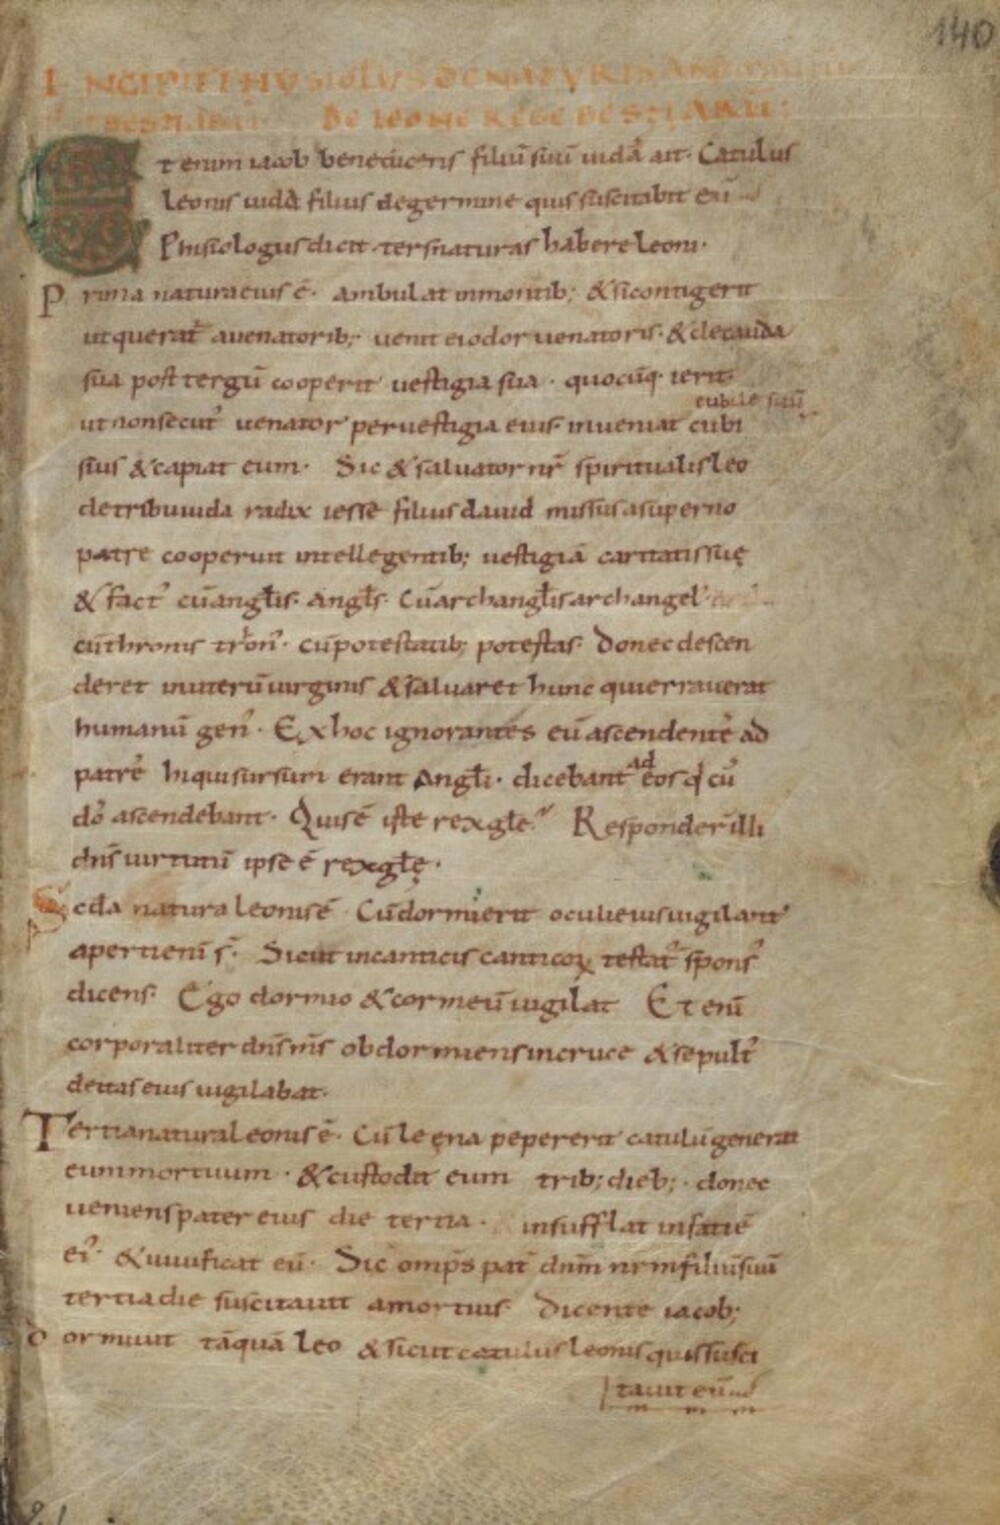 140
INCIPIT FHYSIOLUS DE NATURIS ANI
BESTIARU. DE LEONE REGE BESTIARŪ:
Etenim iacob benedicens filiū suū iudā ait. Catulus
leonis iudā filius de germine quis suscitabit eū
Phisiologus dicit tersnaturas habere leoni.
Prima natura eius ē. ambulat in montib; & si contigerit
ut querat᷒ a uenatorib; uenit ei odor uenatoris. & de cauda
sua post tergū cooperit uestigia sua. quocūq; ierit
cubile suū
ut non secut᷒ uenator per uestigia eius. inueniat cubi
sius & capiat eum. Sic & saluator nr̄ spiritualis leo
de tribu iuda radix iesse filius dauid missus a superno
patre cooperuit intellegentib; uestigiā caritatis suę
& fact᷒ cū angl̄is. angl̄s. Cū archangl̄is archangel᷒
cū thronis tron᷒. cū potestatib; potestas. Donec descen
deret in uterū uirginis & saluaret hunc qui errauerat
humanū gen᷒. Ex hoc ignorantes eū ascendentē ad
patrē hi qui sursum erant Angl̄i. dicebant ad eos q̄ cū
dn̄o ascendebant. Quis ē iste rex gl̄e? Responder̄ illi
dn̄s uirtutū ipse ē rex gl̄ę.
Scda natura leonis ē Cū dormierit oculi eius uigilant
aperti enī s̄. Sicut in canticis canticoꝝ testat᷒ spons᷒
dicens. Ego dormio & cor meū uigilat Et enī
corporaliter dn̄s m̄s obdormiens in cruce & sepult᷒
deitas eius uigilabat.
Tertia natura leonis ē. Cū leęna pepererit catulū generat
eum mortuum. & custodit eum trib; dieb;. donec
ueniens pater eius die tertia. insufflat in fatiē
ei᷒. & uiuificat eū. Sic omp̄s pat̄ dn̄m nr̄m filiū suū
tertia die suscitauit a mortuis. Dicente iacob;
dormiuit tāquā leo & sicut catulus leonis quis susci
tauit eū